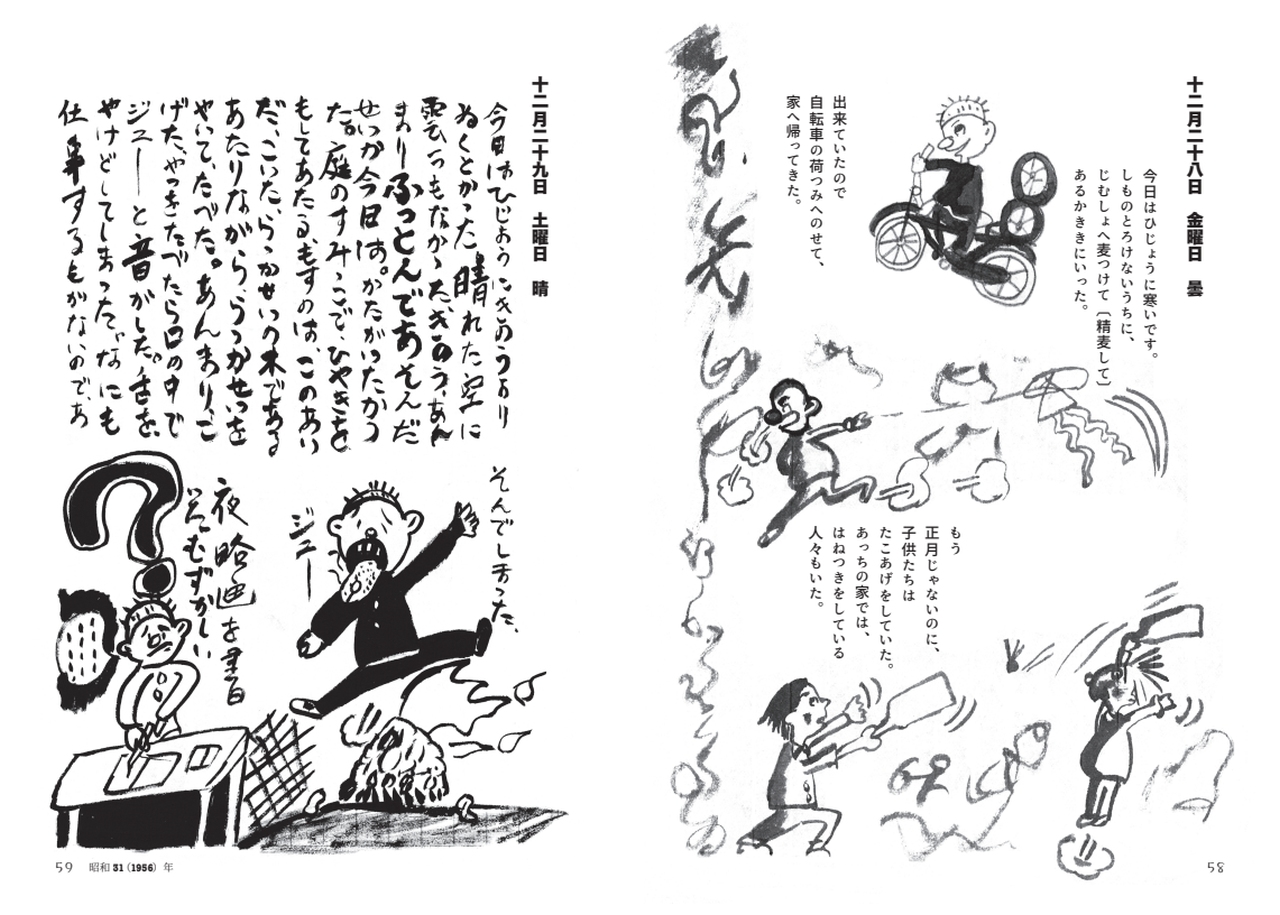 十二月二十八日　金曜日　曇
今日はひじょうに寒いです。
しものとろけないうちに、
じむしょへ麦つけて〔精麦して〕
あるかききにいった。
出来ていたので
自転車の荷つみへのせて、
家へ帰ってきた。
もう
正月じゃないのに、
子供たちは
たこあげをしていた。
あっちの家では、
はねつきをしている
人々もいた。
58
十二月二十九日　土曜日　晴
今日はひじょうにきのうより
ぬくとかった。晴れた空に
雲一つもなかった。きのう、あん
まりふっとんであそんだ
せいか今日は。かたがいたかっ
た。庭のすみっこで、ひやきを
もしてあたる。もすのは、このあい
だ、こいた、らっかせいの木である
あたりながららっかせいを
やいて、たべた。あんまり、こ
げた、やつをたべたら口の中で
ジューーと音がした。舌を、
やけどしてしまった。なにも
仕事するもがないので、あ
そんでしまった。
ジューー
夜略画を書
むずかしい
59　昭和31（1956）年